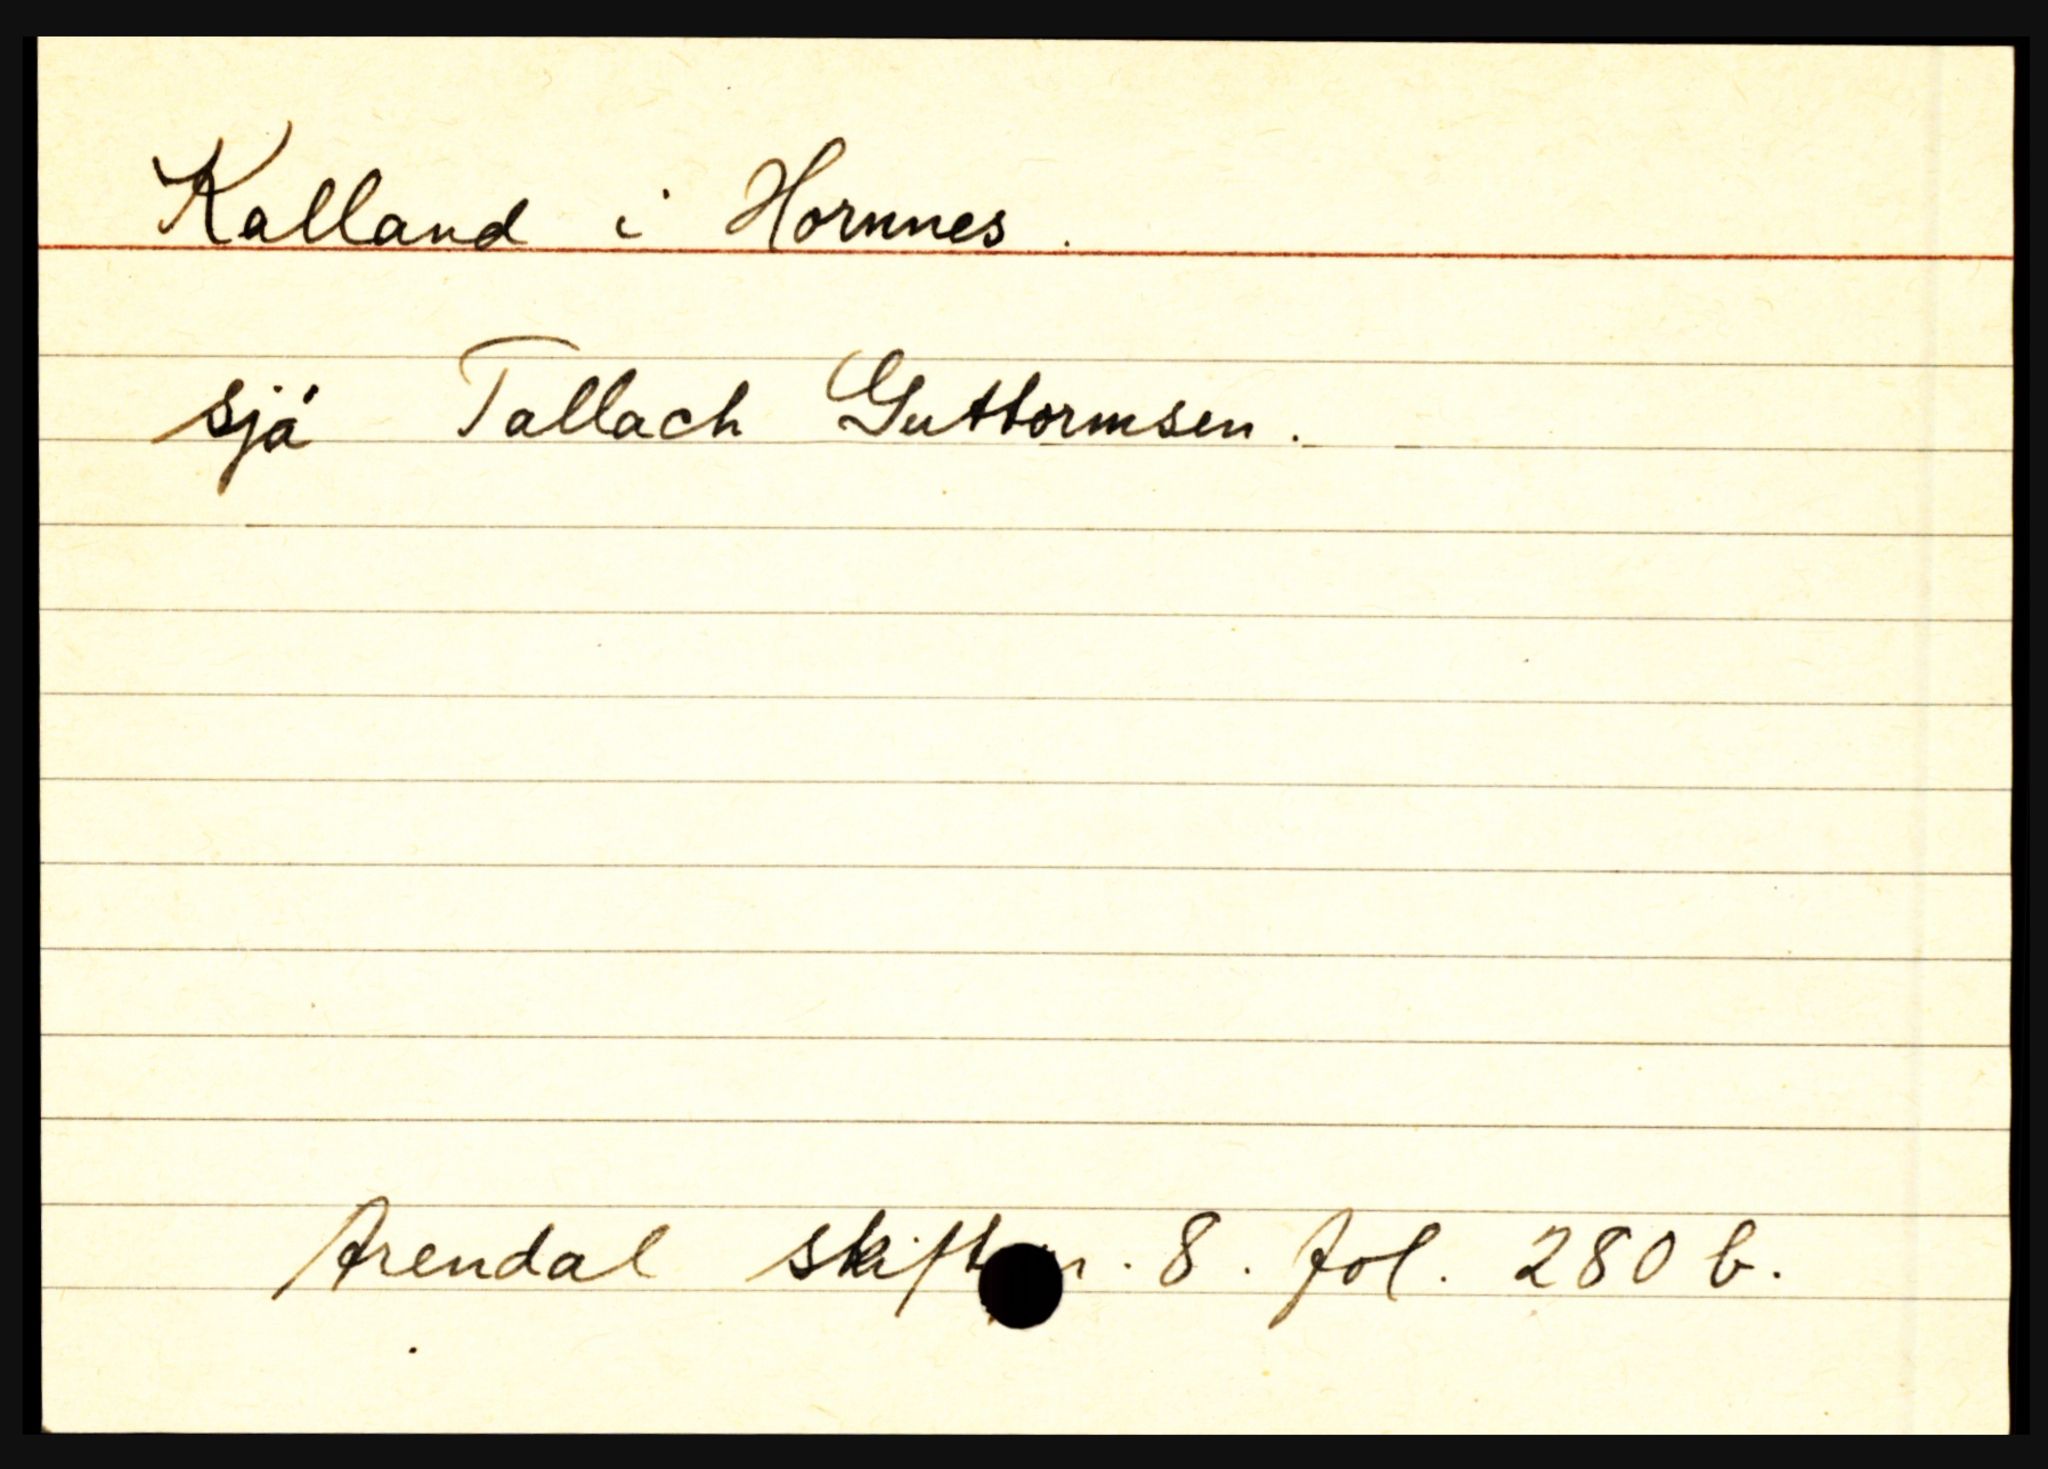 Kalland i Hornnes.
sjå Tallach Guttormsen.
Arendal 8. fol. 280 b.